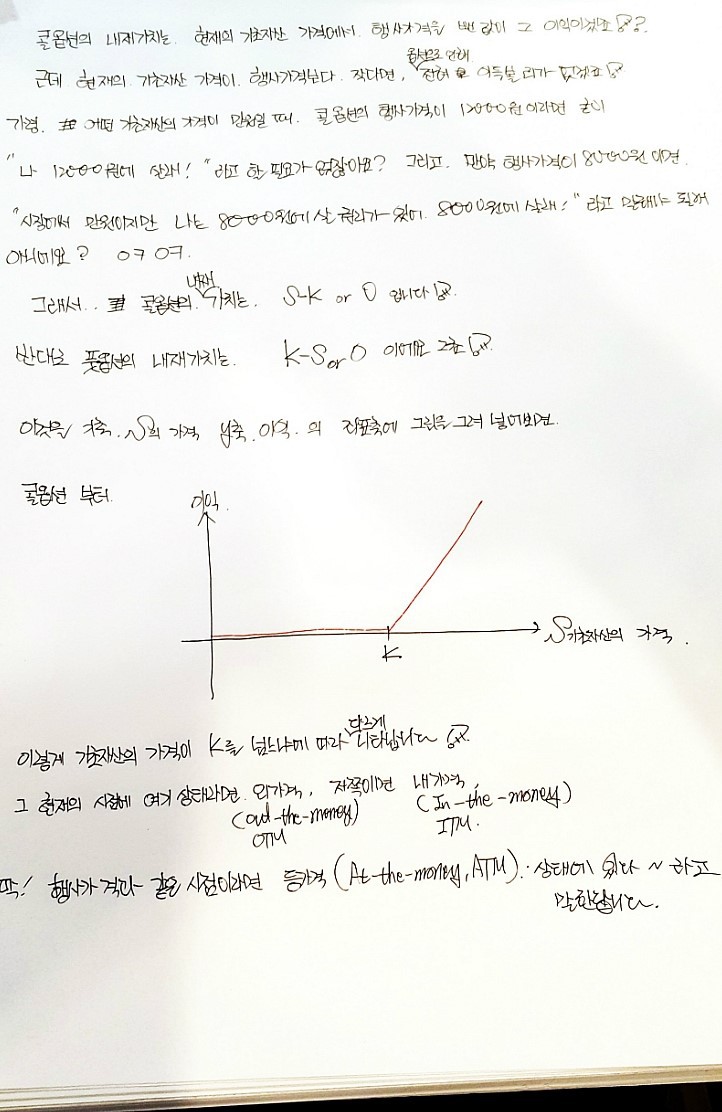 콜옵션의 내재가치는. 현재의 기초자산 가격에서. 행사가격을 뺀 값이 그 이익이겠죠??
근데 현재의. 기초자산 가격이. 행사가격보다. 작다면, 옵션으로 인해 전혀 이득볼 리가 없겠죠
가령. 어떤 기초자산의 가격이 만원일 때. 콜옵션의 행사가격이 12000원이라면 굳이
"나 12000원에 살래!" 라고 할 필요가 없잖아요? 그리고. 만약 행사가격이 8000원 이면.
"시장에서 만원이지만 나는 8000원에 살 권리가 있어. 8000원에 살래!" 라고 말해야 될거
아니에요? ㅇㅋ ㅇㅋ.
그래서.. 콜옵션의. 내재가치는. S-K or 0 입니다.
반대로 풋옵션의 내재가치는. K-S or 0 이에요
이것을 x축. S의 가격 y축. 이익. 의 좌표축에 그림을 그려 넣어보면.
콜옵션 부터.
이익.
S기초자산의 가격.
K
이렇게 기초자산의 가격이 K를 넘느냐에 따라 다르게 나타납니다.
그 현재의 시점에 여기 상태라면. 외가격, 저쪽이면 내가격,
(out-the-money) (In-the-money)
OTM ITM.
딱! 행사가격과 같은 시점이라면 등가격 (At-the-money, ATM). 상태에 있다 ~ 라고
말한답니다.